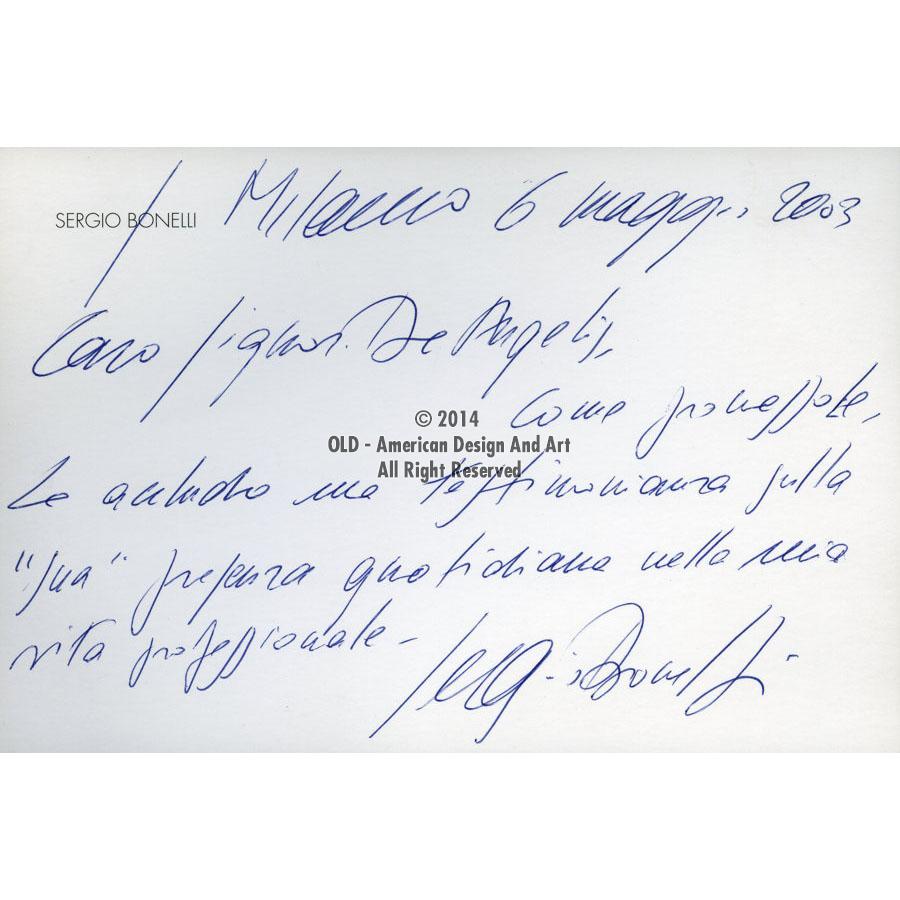 SERGIO BONELLI
Milano 6 maggio 2003
Caro Signor De Angelis,
come promessole,
© 2014
OLD - American Design And Art
All Right Reserved
Le accludo una testimonianza sulla
"sua" presenza quotidiana nella mia
vita professionale -
Sergio Bonelli